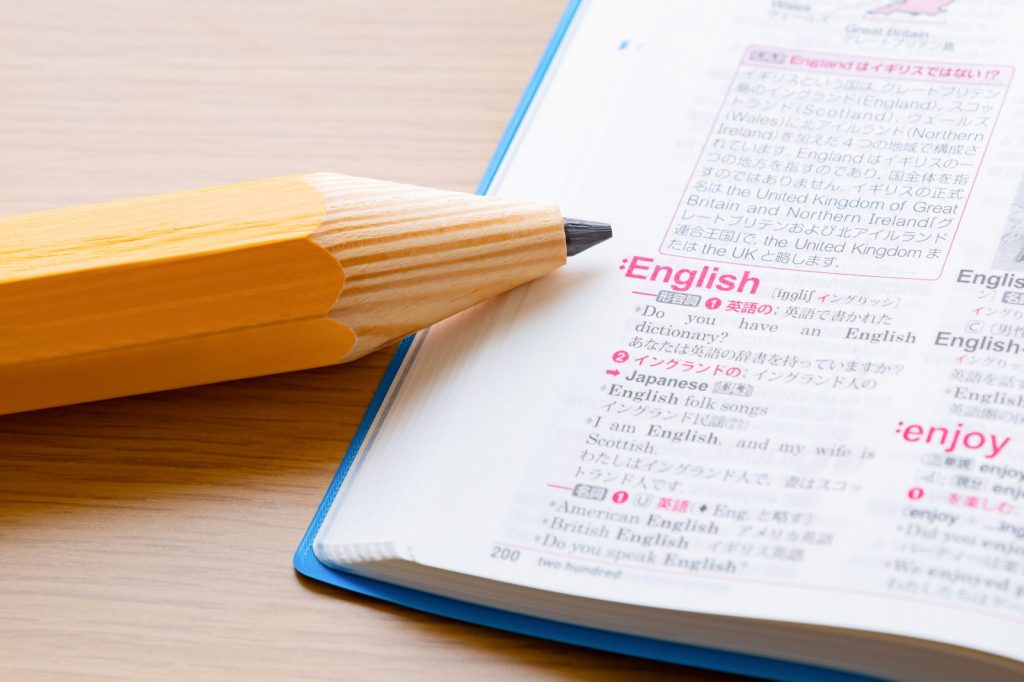 Wales
ウェールズ
Great Britain
グレートブリテン島
Englandはイギリスではない!?
イギリスという国は, グレートブリテン
島のイングランド(England), スコッ
トランド(Scotland), ウェールズ
(Wales)に北アイルランド(Northern
Ireland)を加えた4つの地域で構成さ
れています. Englandはイギリスの一
つの地方を指すのであり, 国全体を指
すのではありません. イギリスの正式
名は the United Kingdom of Great
Britain and Northern Ireland「グ
レートブリテンおよび北アイルランド
連合王国」で, the United Kingdom ま
たは the UK と略します.
English [íŋgliʃ イングリッシ]
形容詞 ❶ 英語の; 英語で書かれた
Do you have an English
dictionary?
あなたは英語の辞書を持っていますか?
❷ イングランドの; イングランド人の
➡ Japanese
English folk songs
イングランド民謡
I am English, and my wife is
Scottish.
わたしはイングランド人で, 妻はスコッ
トランド人です.
名詞 ❶ U 英語(♦ Eng. と略す)
American English アメリカ英語
British English イギリス英語
Do you speak English?
200 two hundred
English
名
イングリ
C (男性
English-
イングリッ
英語を話
English
英語圏の
enjoy
enjoy
enjoy
❶ …を楽しむ;
(enjoy + ...ing
Did you enjoy
パーティーは楽
We enjoyed
わたしたちは